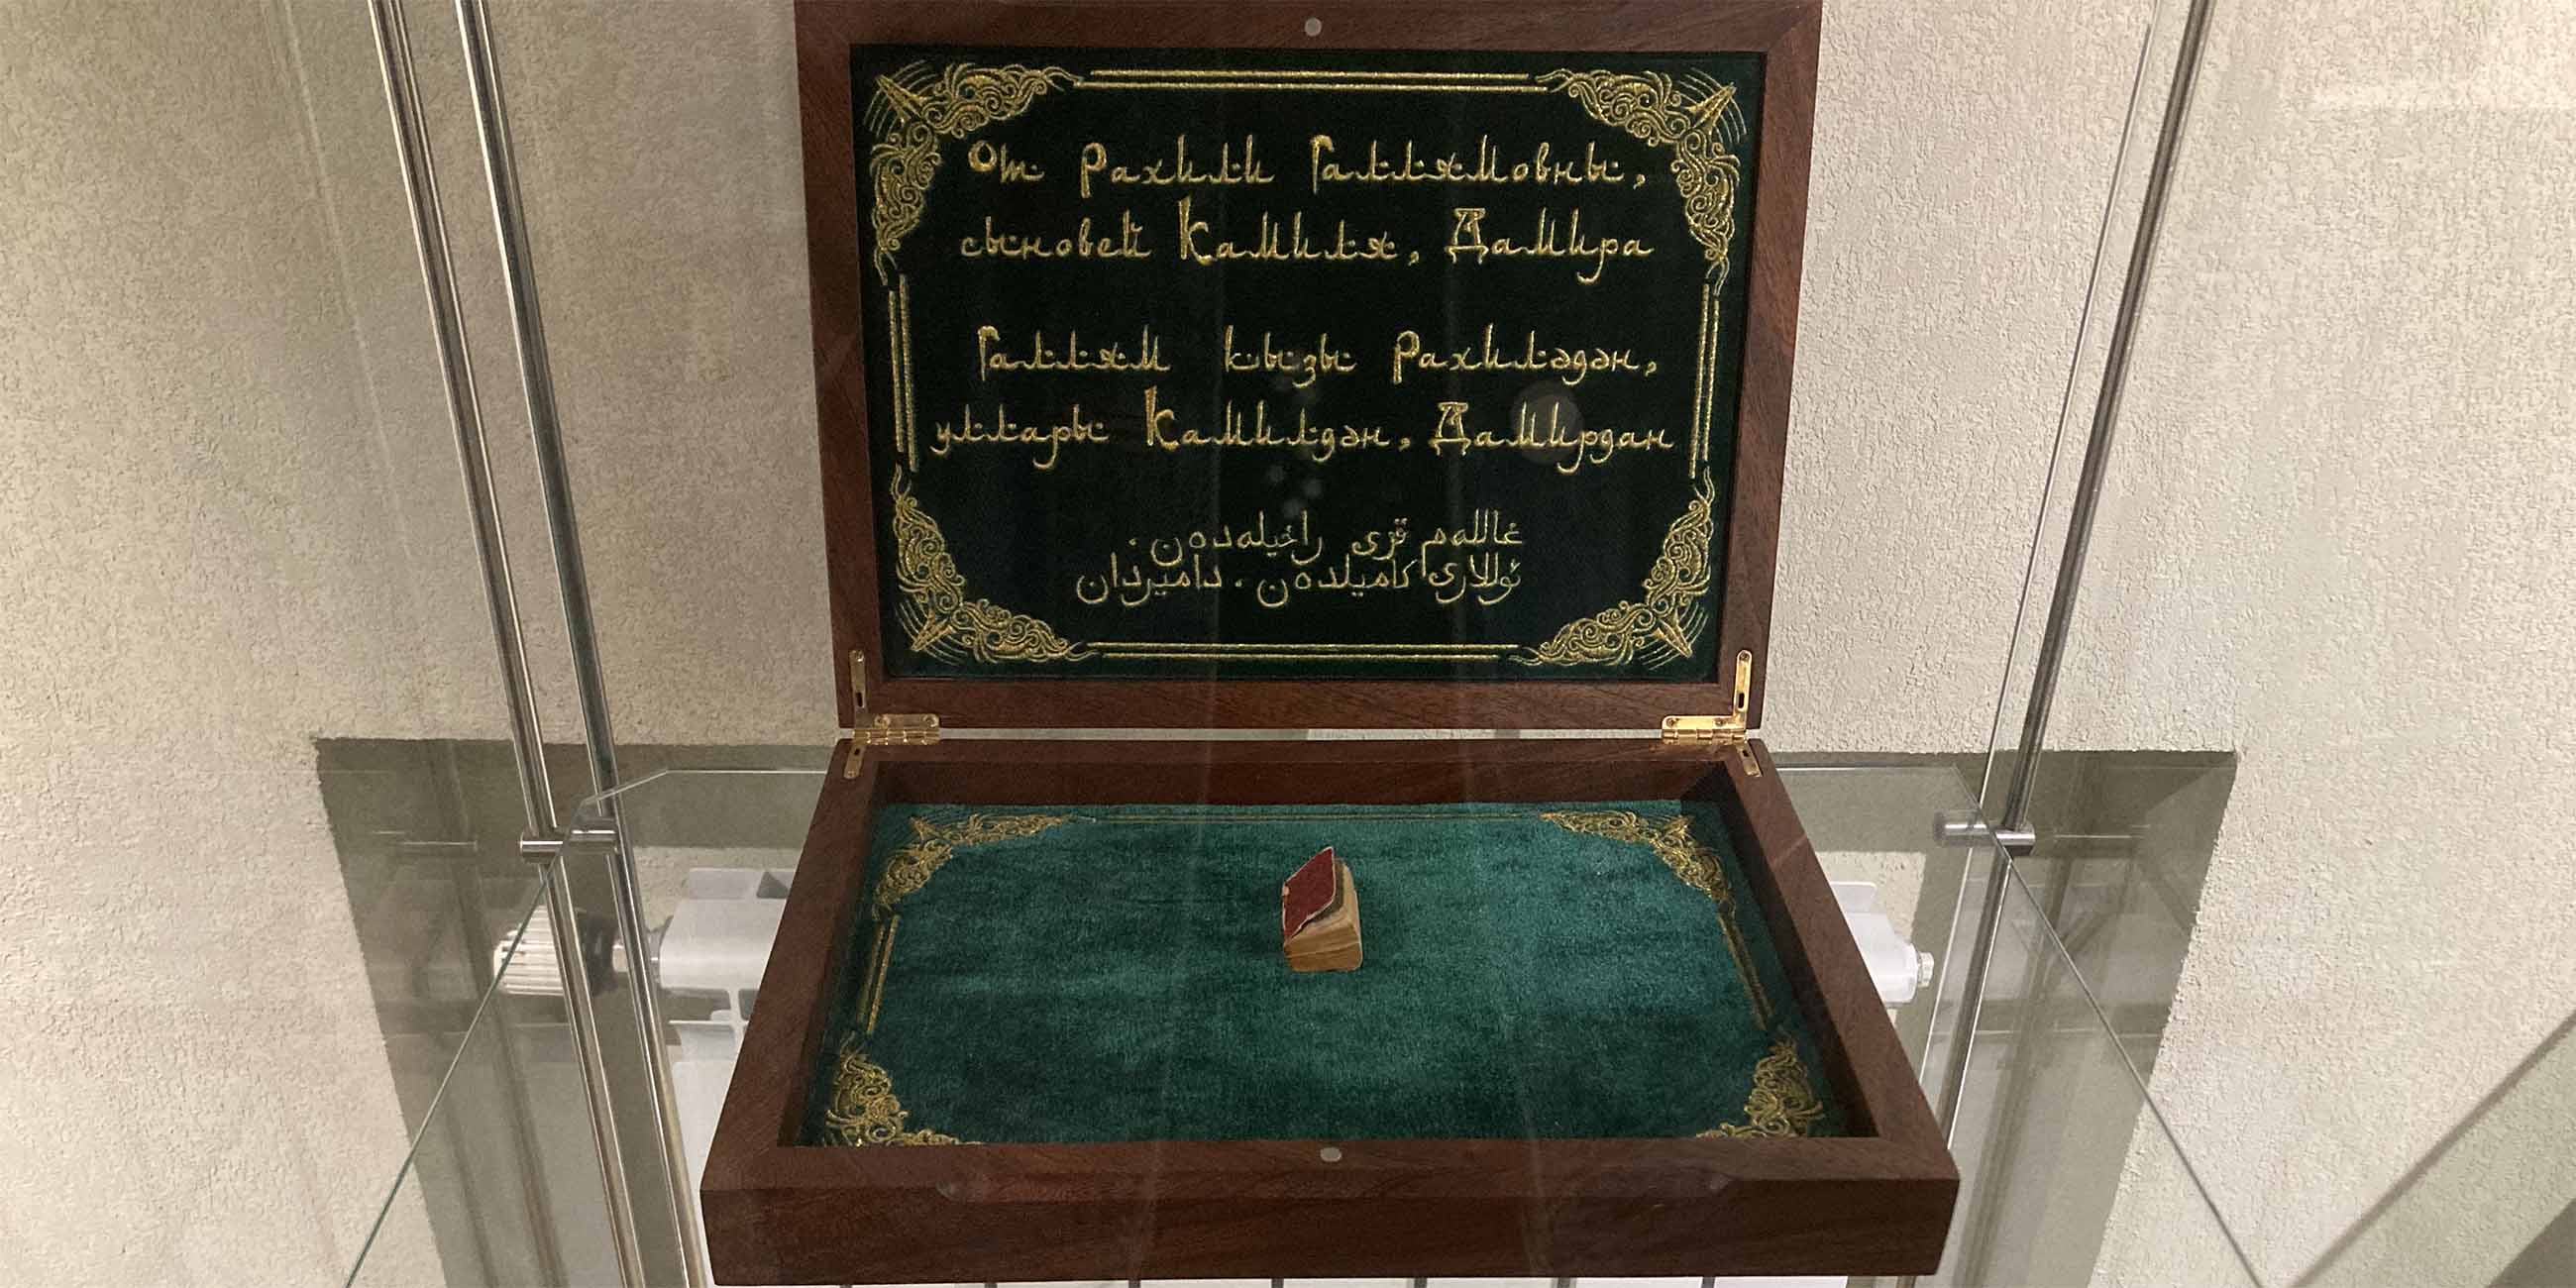 От Рахили Галлямовны,
сыновей Камиля, Дамира
Галлям кызы Рахиләдән,
уллары Камилдән, Дамирдан
غاللەم قزی راخیلەدەن.
ئوللاری کامیلدەن. دامیردان